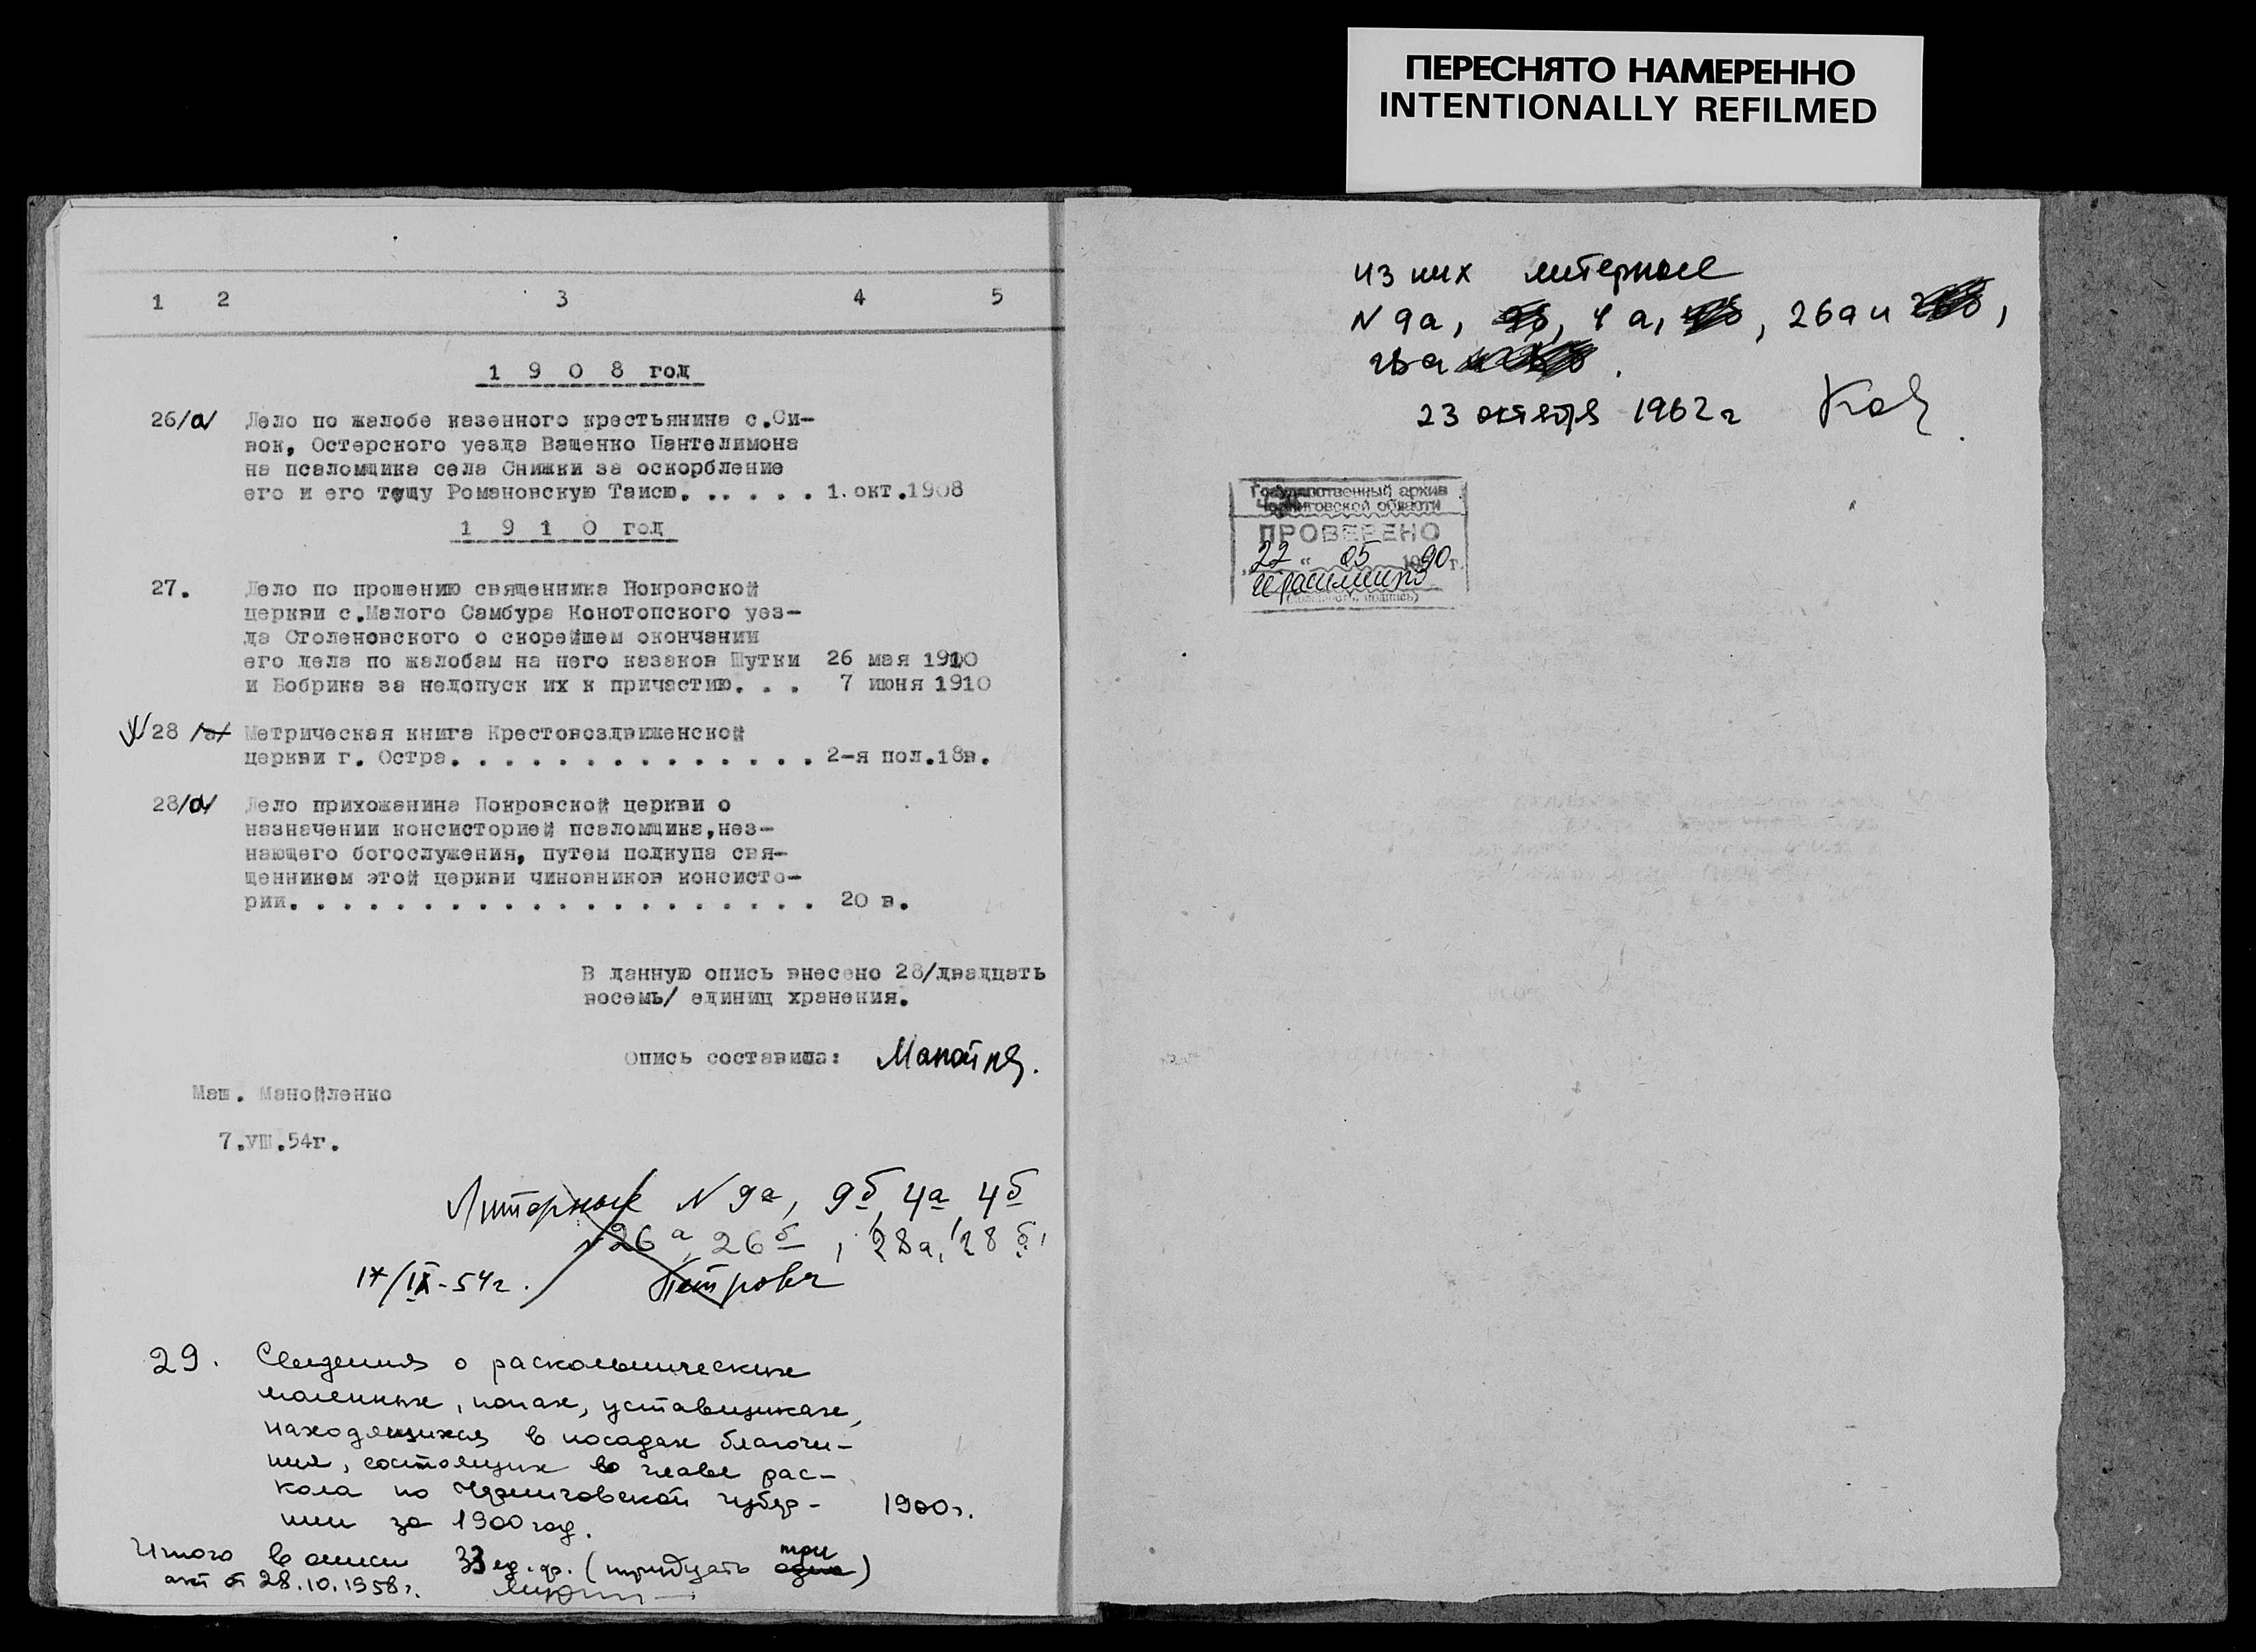 ПЕРЕСНЯТО НАМЕРЕННО
INTENTIONALLY REFILMED
1 2 3 4 5
1 9 0 8 год
26/а/ Дело по жалобе казенного крестьянина с.Си-
вок, Остерского уезда Ващенко Пантелимона
на псаломщика села Снижки за оскорбление
его и его тещу Романовскую Таисю. . . . . . 1. окт.1908
1 9 1 0 год
27. Дело по прошению священника Покровской
церкви с.Малого Самбура Конотопского уез-
да Столеновского о скорейшем окончании
его дела по жалобам на него казаков Шутки 26 мая 1910
и Бобрика за недопуск их к причастию. . . 7 июня 1910
28 /а/ Метрическая книга Крестовоздвиженской
церкви г. Остра. . . . . . . . . . . . . . 2-я пол.18в.
28/а/ Дело прихожанина Покровской церкви о
назначении консисторией псаломщика,нез-
нающего богослужения, путем подкупа свя-
щенником этой церкви чиновников консисто-
рии. . . . . . . . . . . . . . . . . . . . 20 в.
В данную опись внесено 28/двадцать
восемь/ единиц хранения.
Опись составила:
Маш. Манойленко
7.УШ.54г.
Литерные N 9а, 9б, 4а, 4б
26а, 26б, 28а, 28б,
17/IX-54г. Петрова
29. Сведения о раскольнических
моленных, попах, уставщиках,
находящихся в посадах благочи-
ния, состоящих во главе рас-
кола по Черниговской губер-
нии за 1900 год. 1900г.
Итого в описи 33 ед.хр. (тридцать три одна)
акт от 28.10.1958г.
из них литерные
N 9а, 4а, 26а и
28а
23 октября 1962 г
Государственный архив
Черниговской области
ПРОВЕРЕНО
„22“ 05 1990г.
(должность, подпись)